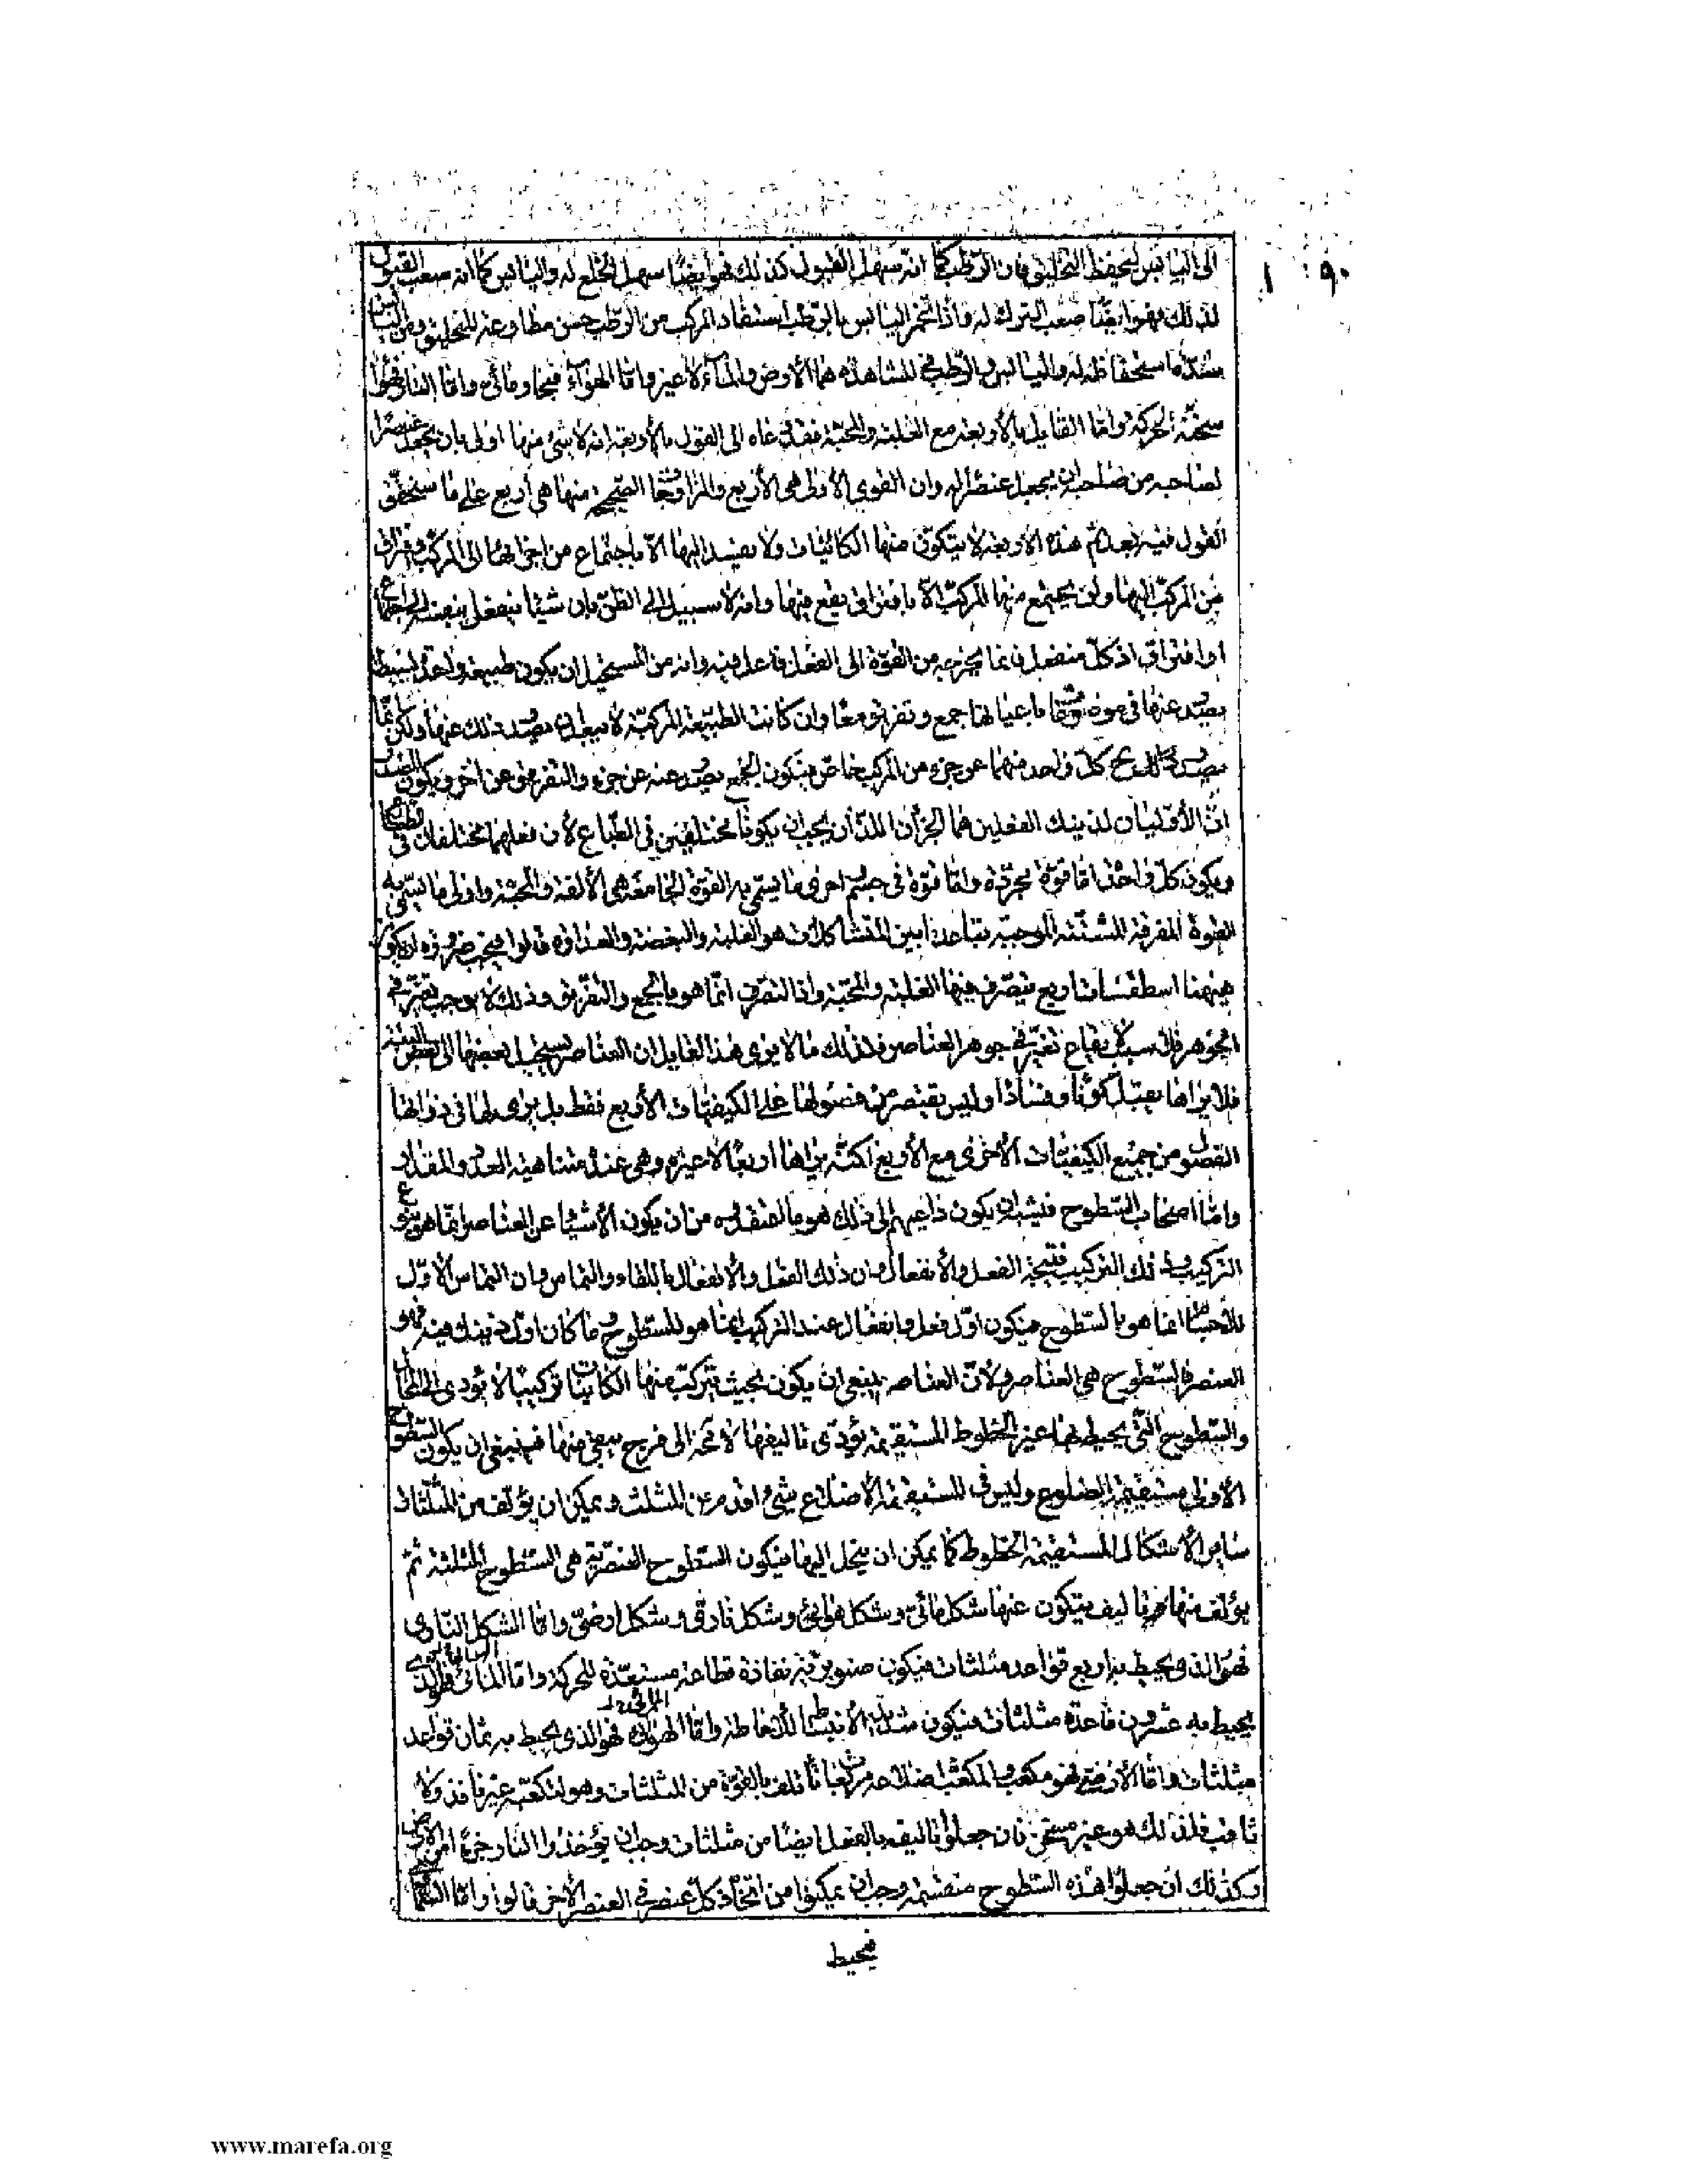 ٩٠ ١
الى اليابس ليحفظ التخليق فان الرطب كما انه سهل القبول كذلك فهو ايضا سهل الخلع له واليابس كما انه صعب القبول
لذلك فهو ايضا صعب الترك له واذا تخمر اليابس بالرطب استفاد المركب من الرطب حسن مطاوعته للتخليق ومن اليابس
شدة استحفاظه له واليابس والرطب في المشاهدة هما الأرض والماء لا غير واما الهواء فبخار مائي واما النار فهواء
سخنته الحركة واما القايل بالأربعة مع الغلبة والمحبة فقد دعاه الى القول بالأربعة انه لا شئ منها اولى بان يجعل عنصرا
لصاحبه من صاحبه ان يجعل عنصرا له وان القوى الأولى هي الأربع والمزاوجات الصحيحة منها هي أربع على ما سنحقق
القول فيه بعد ثم هذه الأربعة لا يتكون منها الكائنات ولا يفسد اليها الا باجتماع من اجزائها الى المركب وافتراق
من المركب اليها ولن يجتمع منها المركب الا بافتراق يقع فيها وانه لا سبيل الى الظن بان شيئا ينفعل بنفسه الى اجتماع
او افتراق اذ كل منفعل فانما يخرجه من القوة الى الفعل فاعل فيه وانه من المستحيل ان يكون طبيعة واحدة بسيطة
يصدر عنها في موضوعات باعيانها جمع وتفريق معا وان كانت الطبيعة المركبة لا يبعد ان يصدر ذلك عنها ولكن انما
يصدر كل واحد منهما عن جزء من المركب خاص فيكون الجمع يصدر عنه عن جزء والتفريق عن آخر ويكون المصدران
الأوليان لذينك الفعلين هما الجزآن اللذان يجب ان يكونا مختلفين في الطباع لأن فعلهما مختلفان في الطباع
ويكون كل واحد اما قوة مجردة واما قوة في جسم احرى ما يسمى به القوة الجامعة هي الألفة والمحبة واولى ما يسمى به
القوة المفرقة المشتتة الموجبة تباعدا بين المتشاكلات هو الغلبة والبغضة والعداوة قالوا فيجب ضرورة ان يكون
هيهنا اسطقسات اربع يتصرف فيها الغلبة والمحبة واذا التصرف انما هو بالجمع والتفريق وذلك لا يوجب تغيرا في
الجوهر فلا سبيل الى ايقاع تغير في جوهر العناصر فلذلك ما لا يرى هذا القايل ان العناصر يستحيل بعضها الى بعض البتة
فلا يراها يقبل كونا وفسادا وليس يقتصر من فصولها على الكيفيات الأربع فقط بل يرى لها في ذواتها
الفصول من جميع الكيفيات الأخرى مع الأربع لكنه يراها اربعا لا غير وهي عنده متناهية العدد والمقدار
واما اصحاب السطوح فيشبه ان يكون داعيهم الى ذلك هو ما اعتقدوه من ان يكون الأشياء عن العناصر انما هو بنوع
التركيب وان ذلك التركيب نتيجة الفعل والأنفعال وان ذلك الفعل والأنفعال باللقاء والتماس وان التماس الأول
للأجسام انما هو بالسطوح فيكون اول فعل وانفعال عند التركيب انما هو للسطوح وما كان اول ذينك فيه فهو
العنصر فالسطوح هي العناصر ولأن العناصر ينبغي ان يكون بحيث يتركب منها الكاينات تركيبا لا يؤدي الى المحال
والسطوح التي يحيط بها غير الخطوط المستقيمة يؤدي تاليفها لا محة الى فرج يبقى فيها فينبغي ان يكون السطوح
الأولى مستقيمة الضلوع وليس في المستقيمة الأضلاع شئ اقدم من المثلث ويمكن ان يؤلف من المثلثات
ساير الأشكال المستقيمة الخطوط كما يمكن ان ينحل اليها فيكون السطوح العنصرية هي السطوح المثلثة ثم
يؤلف منها تاليف يتكون عنها شكل مائي وشكل هوائي وشكل ناري وشكل ارضي واما الشكل الناري
فهو الذي يحيط به اربع قواعد مثلثات فيكون صنوبرية نفاذة قطاعة مستعدة للحركة واما المائي فالذي
يحيط به عشرون قاعدة مثلثات فيكون شديد الأنبساط للأحاطة واما الهوائي فهو الذي يحيط به ثمان قواعد
مثلثات واما الأرضي فهو مكعب والمكعب اضلاعه مربعات تاتلف بالقوة من المثلثات وهو لتكعبه غير نافذ ولا
ثاقب فلذلك هو غير مسخن فان جعلوا تاليفه بالفعل ايضا من مثلثات وجب ان يؤخذوا النار جزءا من الارض
وكذلك ان جعلوا هذه السطوح منقسمة وجب ان يمكنوا من اتخاذ كل عنصر في العنصر الآخر قالوا واما السماء
فيحيط
www.marefa.org